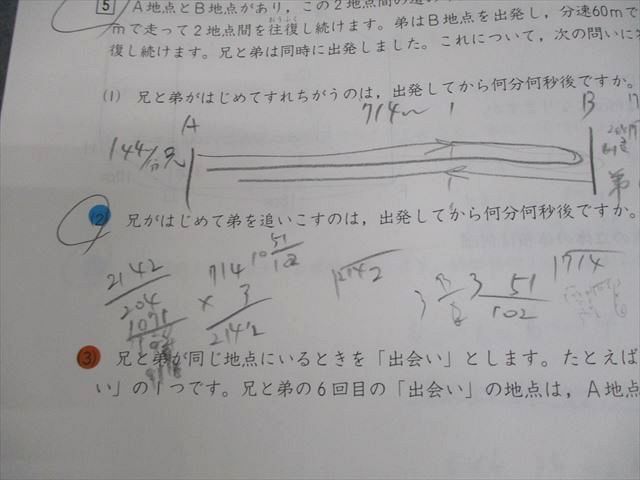 5 A地点とB地点があり，この2地点間の道の
mで走って2地点間を往復し続けます。弟はB地点を出発し，分速60mで
復し続けます。兄と弟は同時に出発しました。これについて，次の問いに
(1) 兄と弟がはじめてすれちがうのは，出発してから何分何秒後ですか。
714m
A
B
144/分 兄
弟
(2) 兄がはじめて弟を追いこすのは，出発してから何分何秒後ですか。
2142
204
714
× 3
2142
10 51
102
3 51
102
1714
(3) 兄と弟が同じ地点にいるときを「出会い」とします。たとえば
い」の1つです。兄と弟の6回目の「出会い」の地点は，A地点